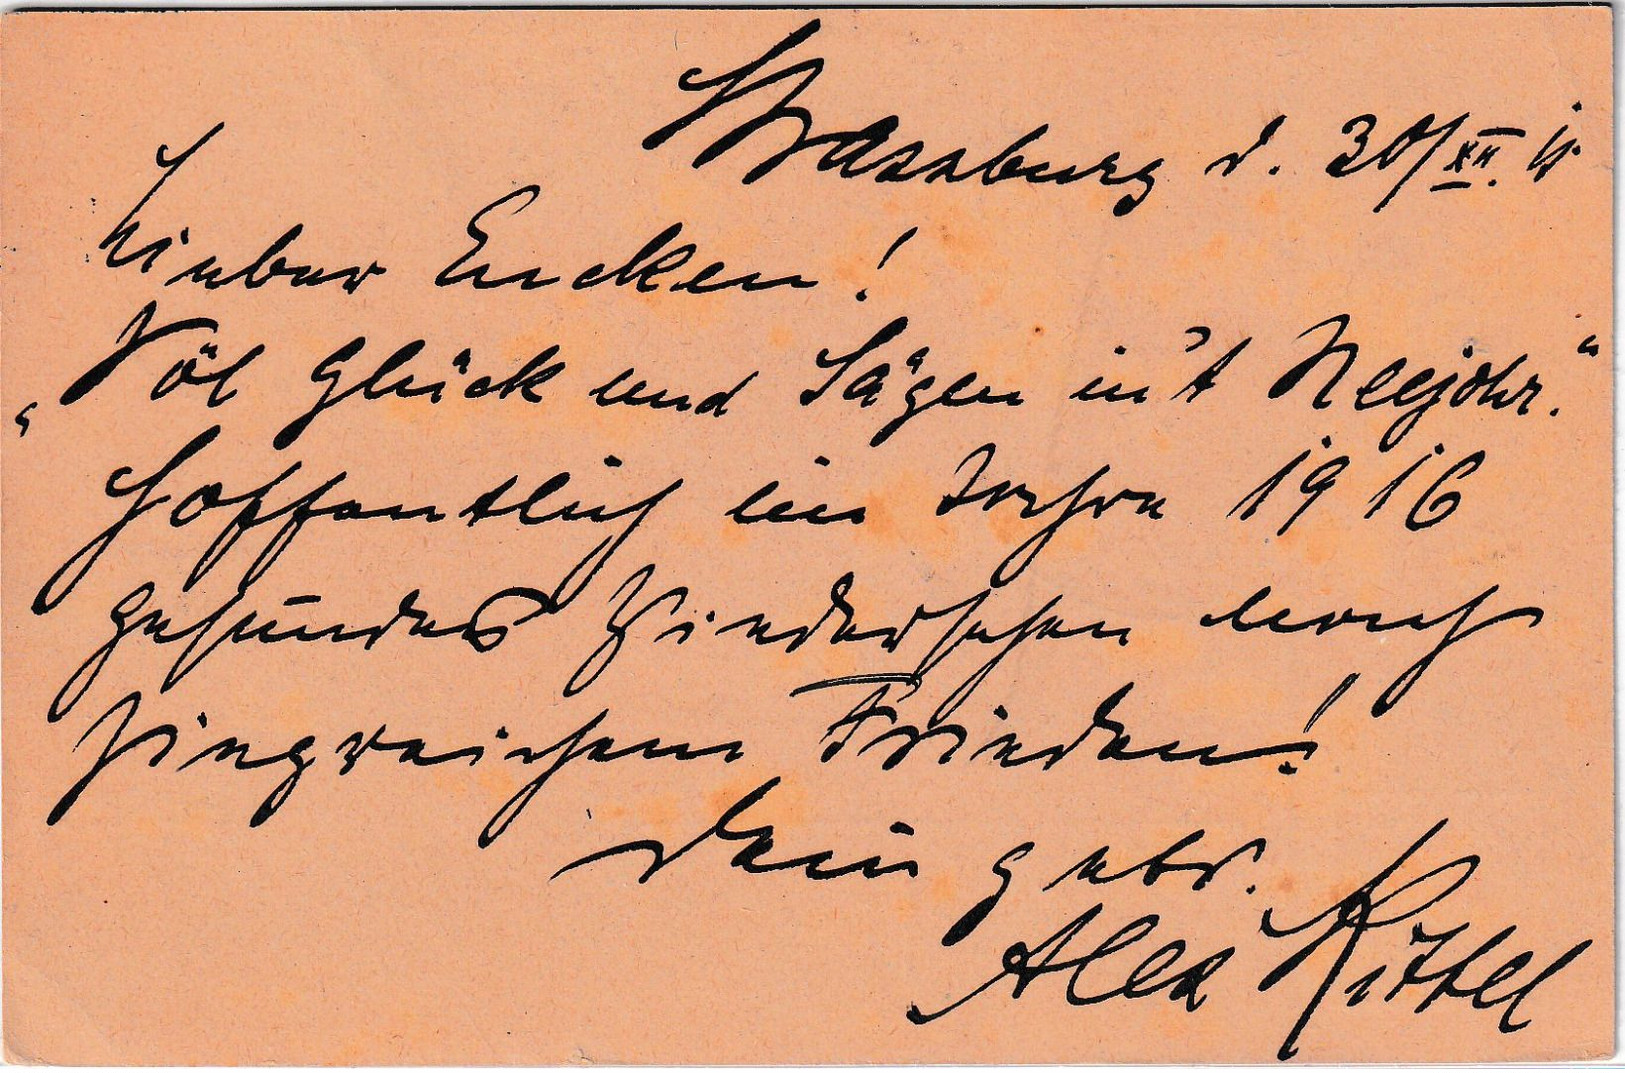 Strassburg d. 30/XII. 15
Lieber Encken!
„Völ Glück und Sägen in't Neejohr."
Hoffentlich im Jahre 1916
gesundes Wiedersehen nach
siegreichem Frieden!
Dein getr.
Alex Kittel